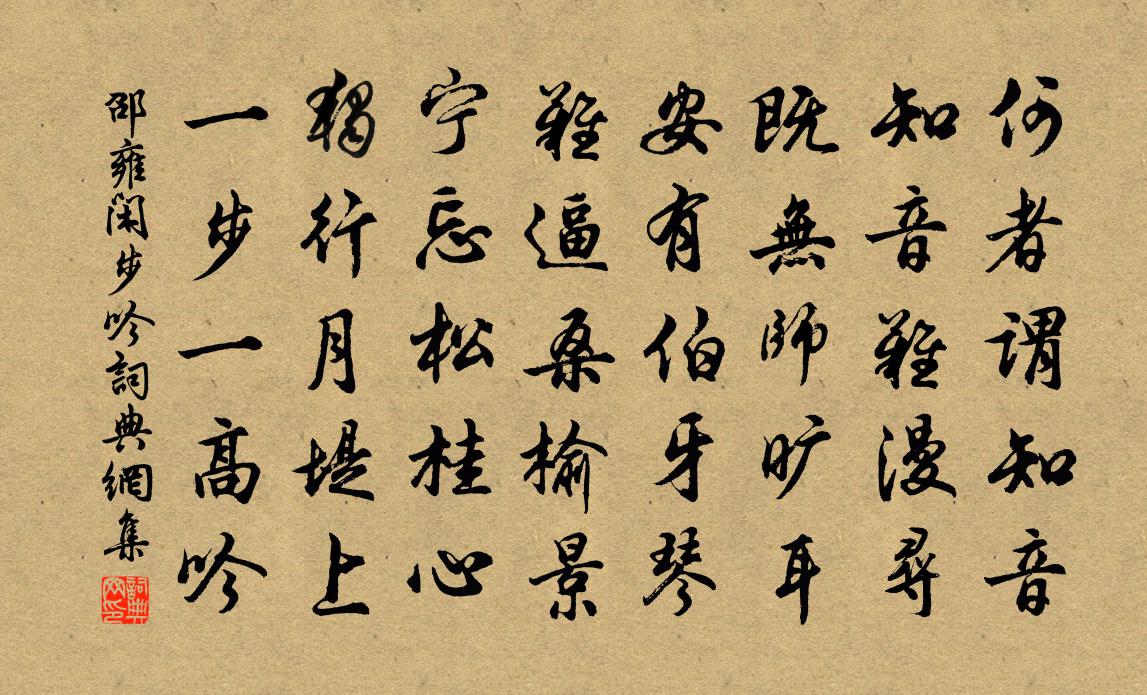 何者謂知音
知音難漫尋
既無師旷耳
安有伯牙琴
難逼桑榆景
宁忘松桂心
獨行月堤上
一步一高吟
邵雍閑步吟詞典網集
詞典网印